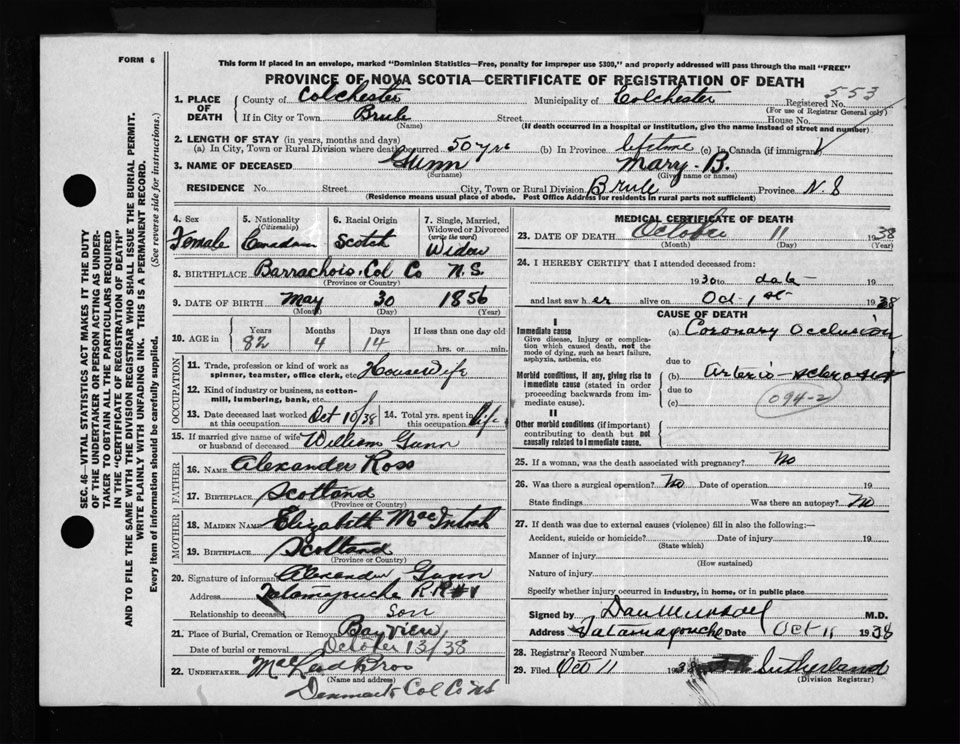 FORM 6
This form if placed in an envelope, marked "Dominion Statistics—Free, penalty for improper use $300," and properly addressed will pass through the mail "FREE"
PROVINCE OF NOVA SCOTIA—CERTIFICATE OF REGISTRATION OF DEATH
SEC. 46—VITAL STATISTICS ACT MAKES IT THE DUTY
OF THE UNDERTAKER OR PERSON ACTING AS UNDER-
TAKER TO OBTAIN ALL THE PARTICULARS REQUIRED
IN THE "CERTIFICATE OF REGISTRATION OF DEATH"
AND TO FILE THE SAME WITH THE DIVISION REGISTRAR WHO SHALL ISSUE THE BURIAL PERMIT.
WRITE PLAINLY WITH UNFADING INK. THIS IS A PERMANENT RECORD.
Every item of information should be carefully supplied. (See reverse side for instructions.)
1. PLACE OF DEATH County of Colchester Municipality of Colchester Registered No. 553
(For use of Registrar General only)
If in City or Town Brule Street House No.
(Name) (If death occurred in a hospital or institution, give the name instead of street and number)
2. LENGTH OF STAY (in years, months and days)
(a) In City, Town or Rural Division where death occurred 50 yrs (b) In Province lifetime (c) In Canada (if immigrant)
3. NAME OF DECEASED Gunn Mary B.
(Surname) (Given name or names)
RESIDENCE No. Street City, Town or Rural Division Brule Province N.S
(Residence means usual place of abode. Post Office Address for residents in rural parts not sufficient)
4. Sex Female
5. Nationality (Citizenship) Canadian
6. Racial Origin Scotch
7. Single, Married, Widowed or Divorced (write the word) Widow
8. BIRTHPLACE Barrachois. Col Co N.S.
(Province or Country)
9. DATE OF BIRTH May 30 1856
(Month) (Day) (Year)
10. AGE in Years 82 Months 4 Days 14 If less than one day old hrs. or min.
OCCUPATION
11. Trade, profession or kind of work as spinner, teamster, office clerk, etc. Housewife
12. Kind of industry or business, as cotton-mill, lumbering, bank, etc.
13. Date deceased last worked at this occupation Oct 10/38 14. Total yrs. spent in this occupation life
15. If married give name of wife or husband of deceased William Gunn
FATHER
16. NAME Alexander Ross
17. BIRTHPLACE Scotland
(Province or Country)
MOTHER
18. MAIDEN NAME Elizabeth MacIntosh
19. BIRTHPLACE Scotland
(Province or Country)
20. Signature of informant Alexander Gunn
Address Tatamagouche R.R#1
Relationship to deceased Son
21. Place of Burial, Cremation or Removal Bayview
Date of burial or removal October 13/38
22. UNDERTAKER MacLeod Bros
(Name and address)
Denmark Col Co NS
MEDICAL CERTIFICATE OF DEATH
23. DATE OF DEATH October 11 1938
(Month) (Day) (Year)
24. I HEREBY CERTIFY that I attended deceased from:
1930 to date 19
and last saw h er alive on Oct-1st- 1938
CAUSE OF DEATH
I
Immediate cause
Give disease, injury or complication which caused death, not the mode of dying, such as heart failure, asphyxia, asthenia, etc
(a) Coronary Occlusion
due to
Morbid conditions, if any, giving rise to immediate cause (stated in order proceeding backwards from immediate cause).
(b) arterio-sclerosis
due to
(c) 094-2
II
Other morbid conditions (if important) contributing to death but not causally related to immediate cause.
25. If a woman, was the death associated with pregnancy? No
26. Was there a surgical operation? No Date of operation 19
State findings Was there an autopsy? No
27. If death was due to external causes (violence) fill in also the following:—
Accident, suicide or homicide? Date of injury 19
(State which)
Manner of injury
(How sustained)
Nature of injury
Specify whether injury occurred in industry, in home, or in public place
Signed by Dan Murray M.D.
Address Tatamagouche Date Oct 11 1938
28. Registrar's Record Number
29. Filed Oct 11 1938 Sutherland
(Division Registrar)